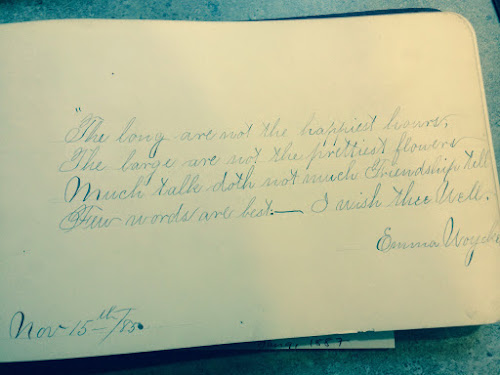 "The long are not the happiest hours,
The large are not the prettiest flowers
Much talk doth not much Friendship tell
Few words are best— I wish thee Well.
Emma
Nov 15th/85
1887